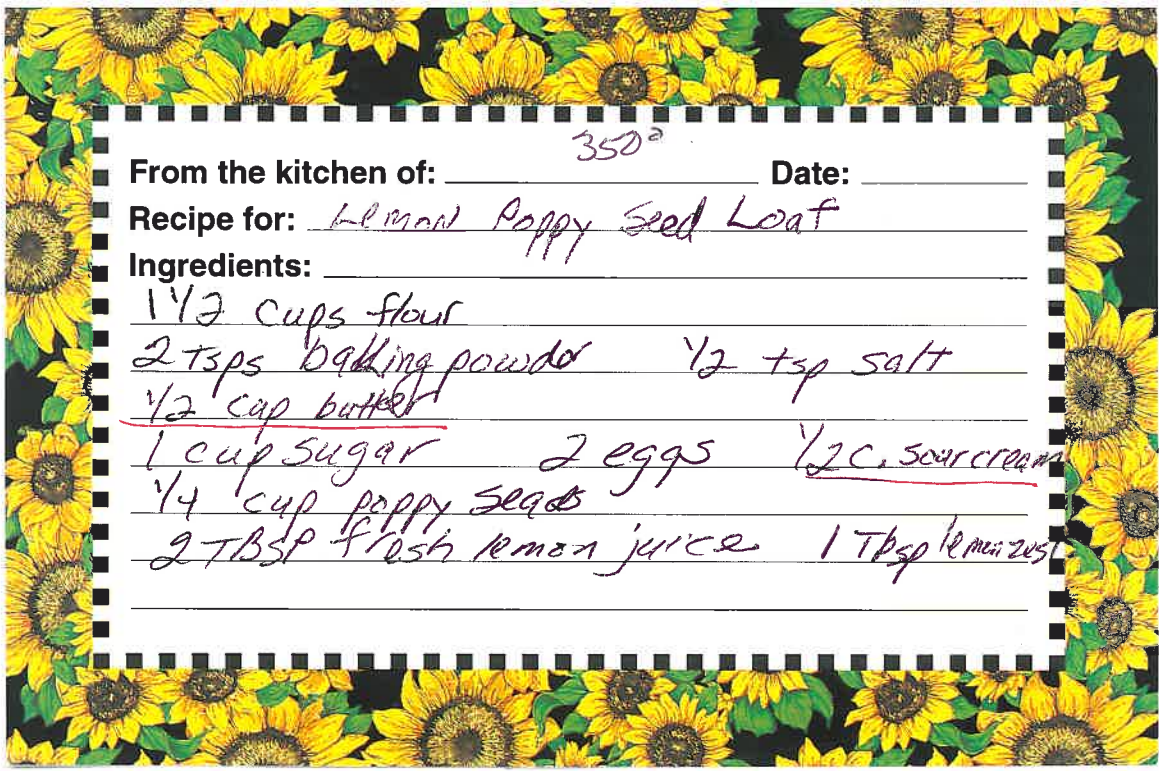 350°
From the kitchen of: Date:
Recipe for: Lemon Poppy Seed Loaf
Ingredients:
1 1/2 cups flour
2 Tsps baking powder 1/2 tsp salt
1/2 cup butter
1 cup sugar 2 eggs 1/2 c. sour cream
1/4 cup poppy seeds
2 TBSP fresh lemon juice 1 Tbsp lemon zest